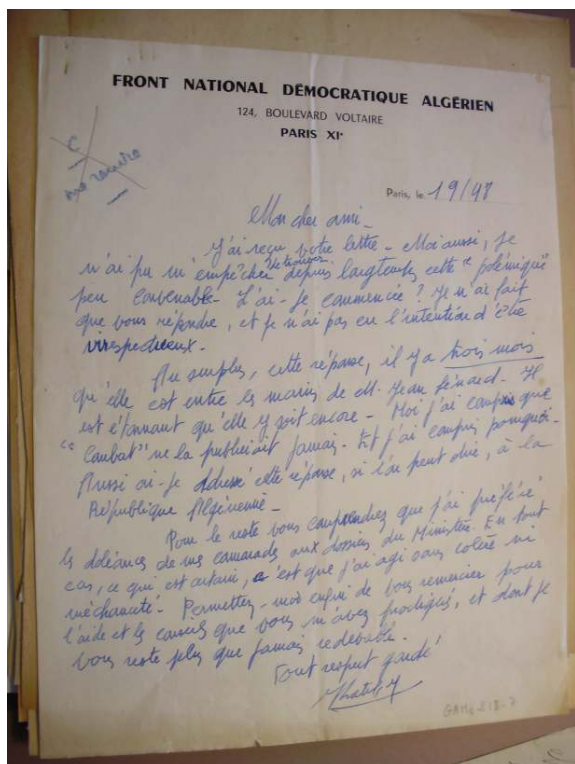 FRONT NATIONAL DÉMOCRATIQUE ALGÉRIEN
124, BOULEVARD VOLTAIRE
PARIS XIe
Paris, le 1 9/48
Mon cher ami -
J'ai reçu votre lettre - Moi aussi, je
n'ai pu m'empêcher de trouver depuis longtemps cette "polémique"
peu convenable - L'ai-je commencée ? Je n'ai fait
que vous répondre, et je n'ai pas eu l'intention d'être
irrespectueux.
Au surplus, cette réponse, il y a trois mois
qu'elle est entre les mains de M. Jean Sénard - Il
est étonnant qu'elle y soit encore - Moi j'ai compris que
"Combat" ne la publierait jamais - Et j'ai compris pourquoi -
Aussi ai-je adressé cette réponse, si l'on peut dire, à la
République Algérienne -
Pour le reste vous comprendrez que j'ai préféré
les doléances de mes camarades aux dossiers du Ministère. En tout
cas, ce qui est certain, c'est que j'ai agi sans colère ni
méchanceté - Permettez-moi enfin de vous remercier pour
l'aide et les conseils que vous m'avez prodigués, et dont je
vous reste plus que jamais redevable.
Tout respect gardé